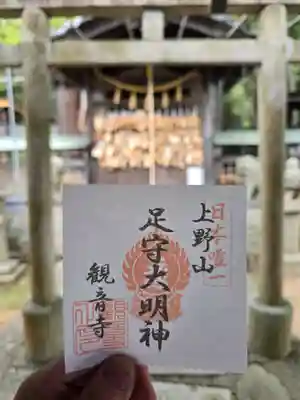 上野山
日本唯一
足守大明神
観音寺